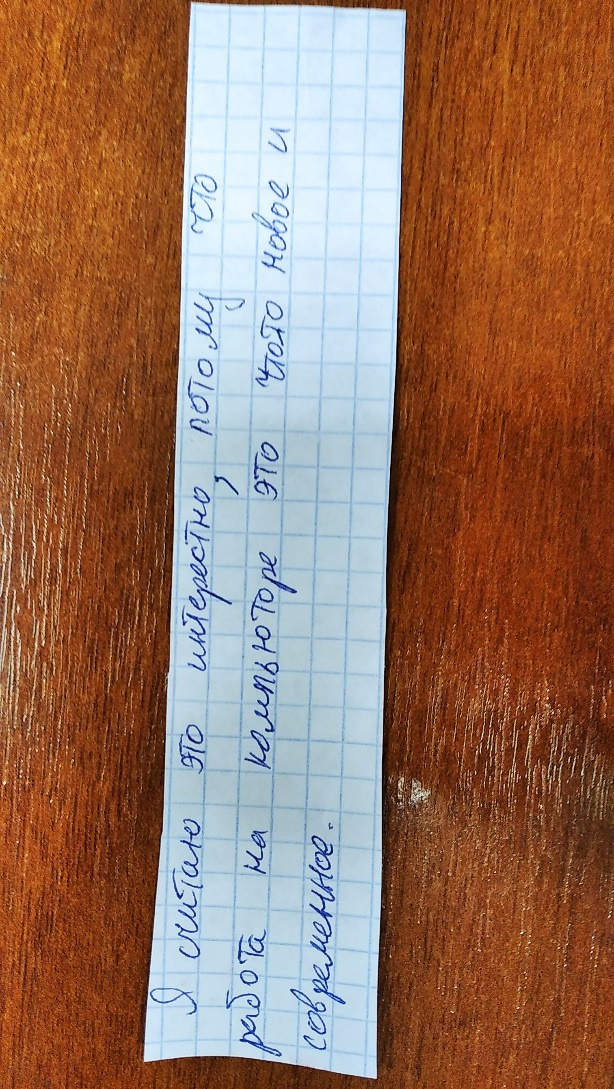 Я считаю это интерестно, потому что
работа на компьюторе это чтото новое и
современное.